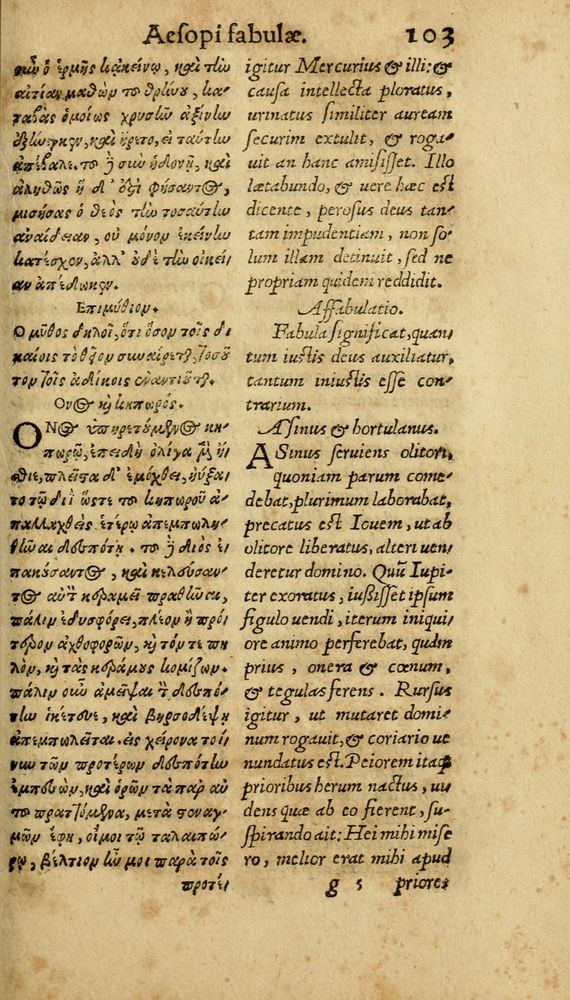 Aesopi fabulæ. 103
οὖν ὁ ἑρμῆς κἀκείνῳ, καὶ τὴν
αἰτίαν μαθὼν τοῦ θρήνου, κα
ταβὰς ὁμοίως χρυσῆν ἀξίνην
ἐξήνεγκεν, καὶ ἤρετο, εἰ ταύτην
ἀπέβαλε. τοῦ δὲ σὺν ἡδονῇ, ναὶ
ἀληθῶς ἥ δ' ἐστὶ φήσαντος,
μισήσας ὁ θεὸς τὴν τοσαύτην
ἀναίδειαν, οὐ μόνον ἐκείνην
κατέσχεν, ἀλλ' οὐδὲ τὴν οἰκεί
αν ἀπέδωκεν.
Επιμύθιον.
Ο μῦθος δηλοῖ, ὅτι ὅσον τοῖς δι
καίοις τὸ θεῖον συναίρεται, τοσοῦ
τον τοῖς ἀδίκοις ἐναντιοῦται.
Ονος καὶ κηπωρός.
ΟΝος ὑπηρετούμενος κη
πωρῷ, ἐπειδὴ ὀλίγα μὲν ἤ
σθιε, πλεῖστα δ' ἐμόχθει, ηὔξα
το τῷ διῒ ὥστε τοῦ κηπωροῦ ἀ
παλλαχθεὶς ἑτέρῳ ἀπεμπωλη
θῆναι δεσπότῃ. τοῦ δὲ διὸς ἐ
πακούσαντος, καὶ κελεύσαν
τος αὐτὸν κεραμεῖ πραθῆναι,
πάλιν ἐδυσφόρει, πλέον ἢ πρό
τερον ἀχθοφορῶν, καὶ τόν τε πη
λὸν, καὶ τὰς κεράμους κομίζων.
πάλιν οὖν ἀμεῖψαι τὸν δεσπό
την ἱκέτευε, καὶ βυρσοδέψῃ
ἀπεμπωλεῖται. εἰς χείρονα τοί
νυν τῶν προτέρων δεσπότην
ἐμπεσὼν, καὶ ὁρῶν τὰ παρ' αὐ
τοῦ πραττόμενα, μετὰ στεναγ
μῶν ἔφη, οἴμοι τῷ ταλαιπώ
ρῳ, βέλτιον ἦν μοι παρὰ τοῖς
προτέ
igitur Mercurius & illi: &
causa intellecta ploratus,
urinatus similiter auream
securim extulit, & roga
uit an hanc amisisset. Illo
lætabundo, & uere hæc est
dicente, perosus deus tan-
tam impudentiam, non so-
lum illam detinuit, sed ne
propriam quidem reddidit.
Affabulatio.
Fabula significat, quan
tum iustis deus auxiliatur,
tantum iniustis esse con-
trarium.
Asinus & hortulanus.
ASinus seruiens olitori,
quoniam parum come-
debat, plurimum laborabat,
precatus est Iouem, ut ab
olitore liberatus, alteri uen
deretur domino. Quũ Iupi-
ter exoratus, iussisset ipsum
figulo uendi, iterum iniqui
ore animo perferebat, quàm
prius, onera & cœnum,
& tegulas ferens. Rursus
igitur, ut mutaret domi-
num rogauit, & coriario ue
nundatus est. Peiorem itaq;
prioribus herum nactus, ui
dens quæ ab eo fierent, su-
spirando ait: Hei mihi mise
ro, melior erat mihi apud
g 5 priores